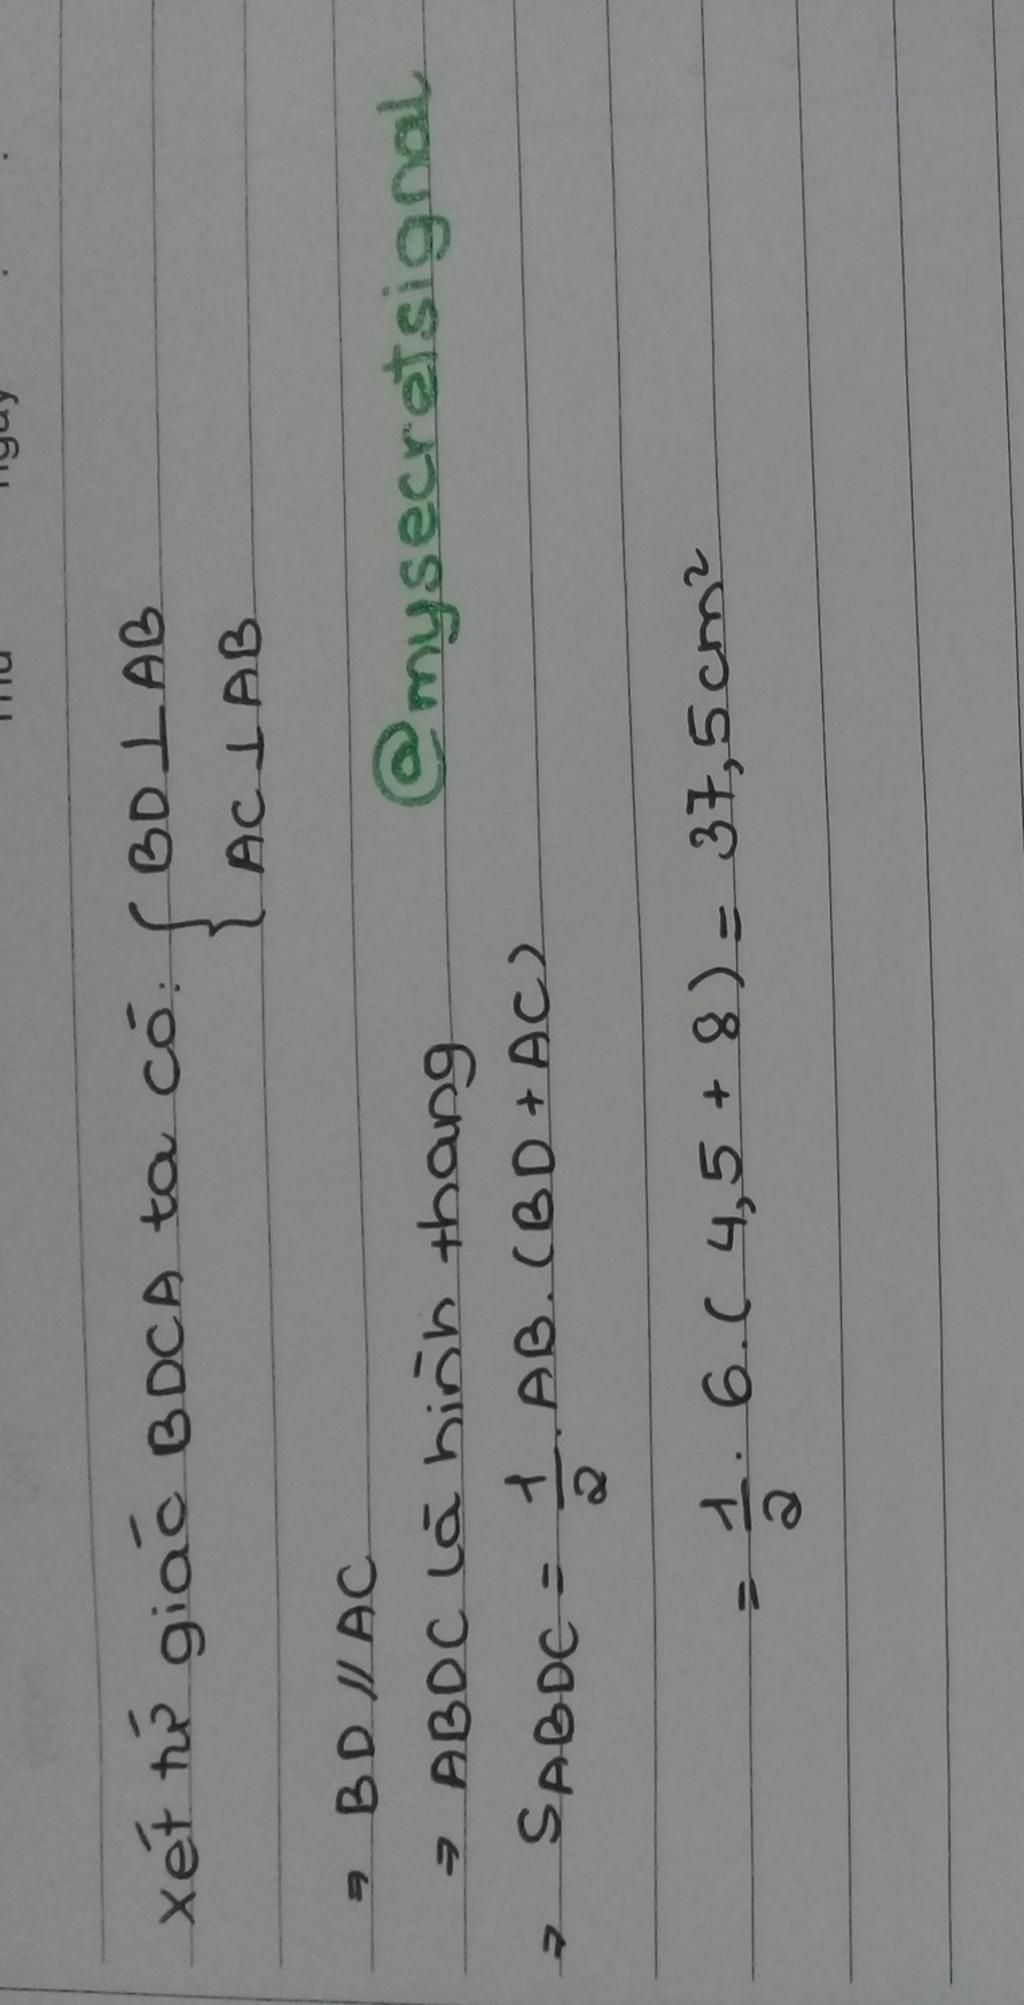 xét tứ giác BDCA ta có: { BD ⊥ AB
AC ⊥ AB
⇒ BD // AC
@mysecretsignal
⇒ ABDC là hình thang
⇒ SABDC = 1/2 . AB . (BD + AC)
= 1/2 . 6 . ( 4,5 + 8 ) = 37,5 cm²